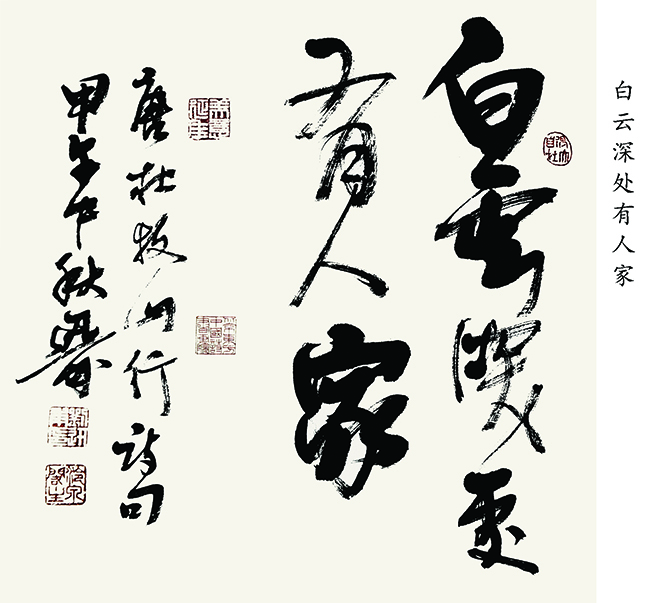 白云深处有人家
白雲深處
有人家
唐杜牧山行詩句
甲午中秋